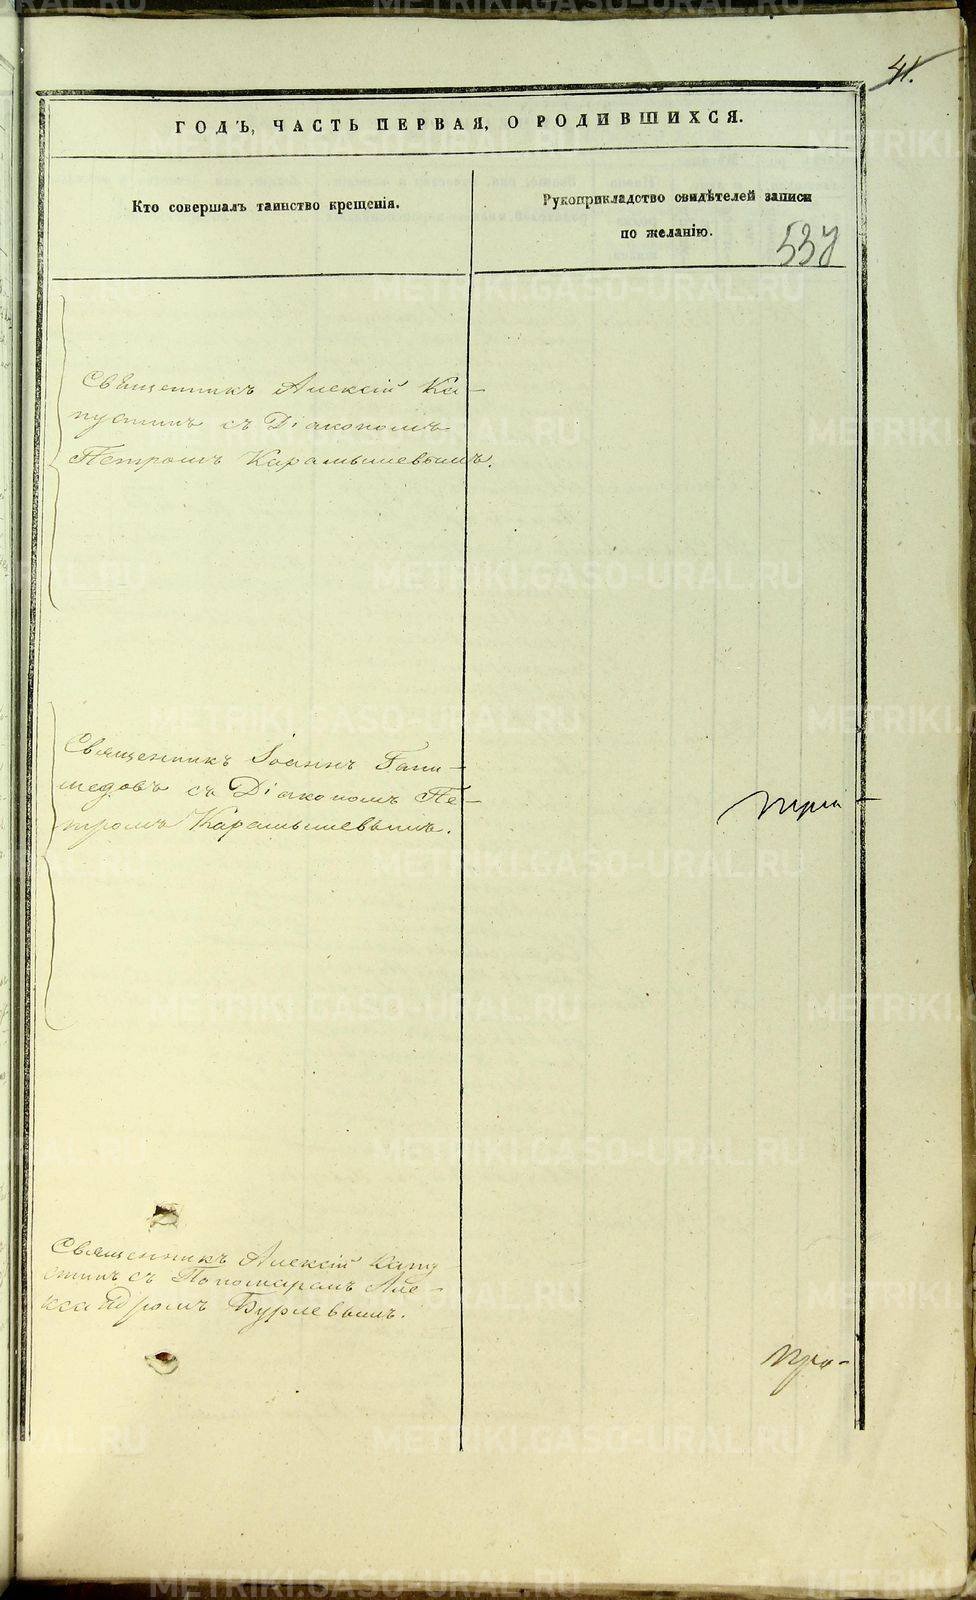 41.
ГОДЪ, ЧАСТЬ ПЕРВАЯ, О РОДИВШИХСЯ.
Кто совершалъ таинство крещенія.
Рукоприкладство свидѣтелей записи
по желанію.
537
Священникъ Алексій Ка-
пустинъ съ Діакономъ
Петромъ Карамышевымъ.
Священникъ Іоаннъ Гани-
медовъ съ Діакономъ Пе-
тромъ Карамышевымъ.
Священникъ Алексій Капу
стинъ съ Пономаремъ Але-
ксандромъ Бурлевымъ.
METRIKI.GASO-URAL.RU